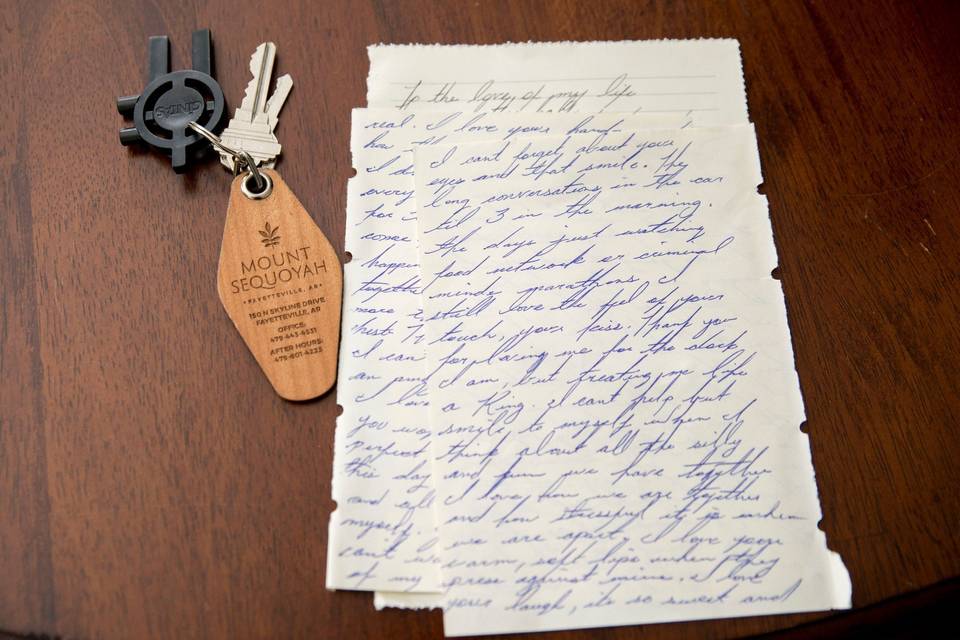 CINTAS
MOUNT
SEQUOYAH
• FAYETTEVILLE, AR •
150 N SKYLINE DRIVE
FAYETTEVILLE, AR
OFFICE:
479-443-4531
AFTER HOURS:
To the love of my life
real. I love your hard-
how
I do
every
for
happen
togethe
more
I can
an
I love
you
perfect
this day
and
myself.
can't
of my
I cant forget about your
eyes and that smile. The
long conversations in the car
til 3 in the morning.
the days just watching
food network or criminal
minds marathons. I
still love the feel of your
touch, your kiss. Thank you
for loving me for the dork
I am, but treating me like
a King. I cant help but
smile, to myself when I
think about all the silly
and fun we have together
I love how we are together
and how stressful it is when
we are apart. I love your
warm, soft lips when they
press against mine. I love
your laugh, its so sweet and